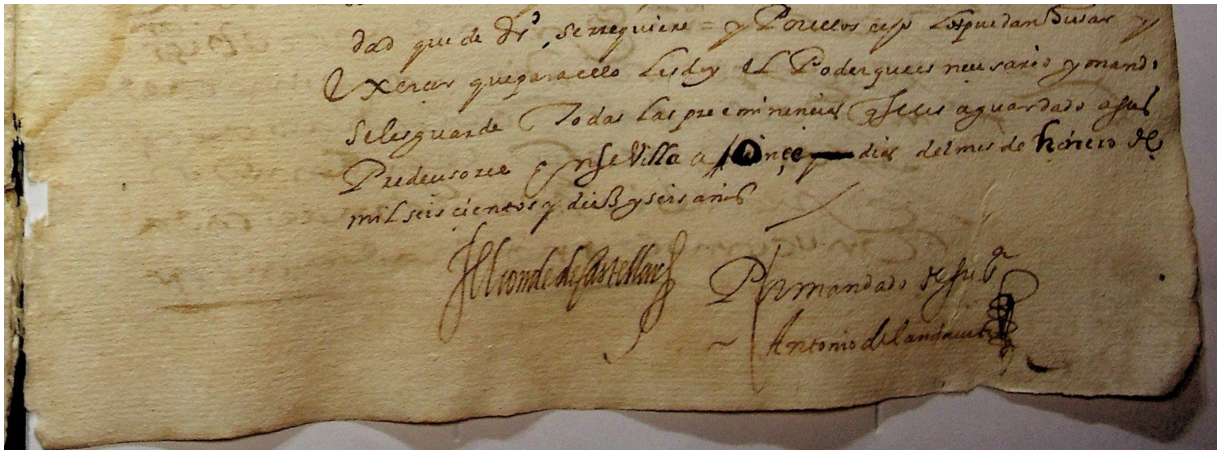 dad que de dr̃o se rrequiere = y Por ellos los puedan Husar y
Exercer que para ello les doy el Poder que es necesario y mando
se les guarde Todas las preeminencias q se les a guardado a sus
Predecesores en seVilla a once dias del mes de henero de
mil seiscientos y dieß y seis años
El conde de Castellar
Por mandado de su sª
Antonio de